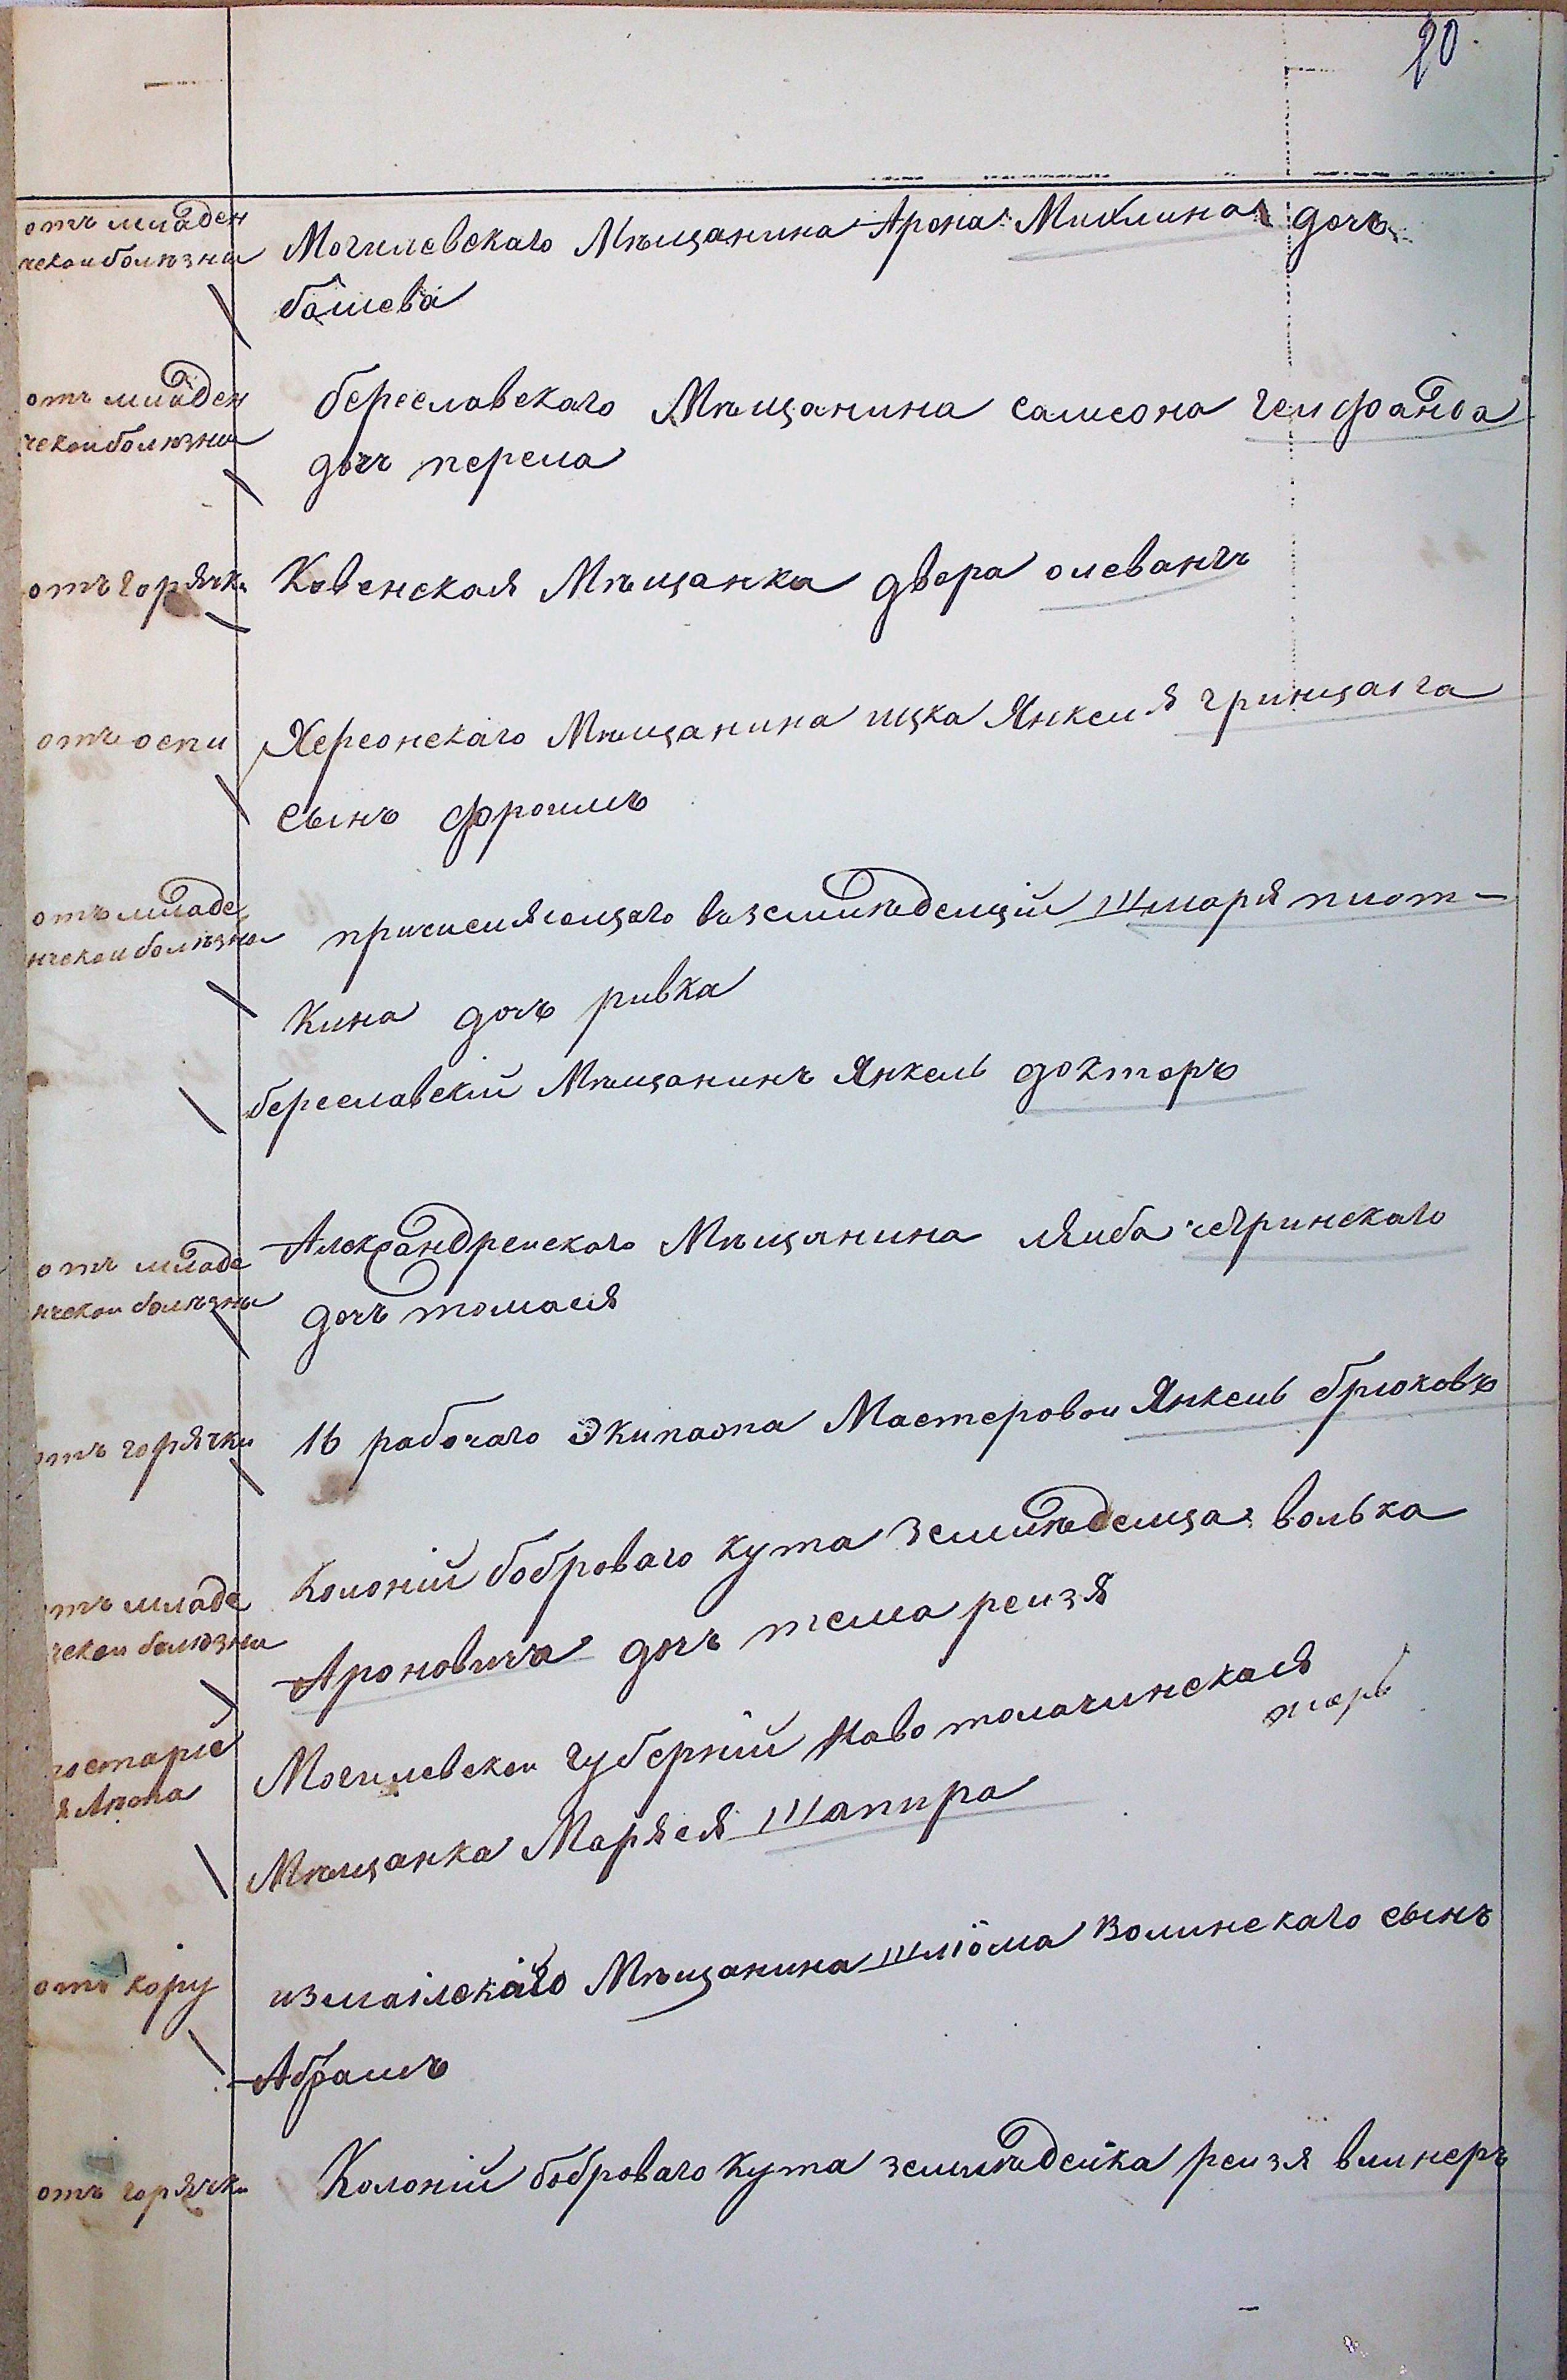 20
отъ младен
ческои болюзни
Могилевскаго Мѣщанина Арона Михлина дочь
башева
отъ младен
ческои болюзни
береславскаго Мѣщанина самсона гелфанда
дочъ перела
отъ горячки
Ковенская Мѣщанка двера олеванъ
отъ оспи
Херсонскаго Мѣщанина ицка Янкеля
сынъ фроимъ
отъ младе
нческои болѣзни
причисляющаго вземлѣделций Шмаря плот-
кина дочъ ривка
береславский Мѣщанинъ Янкель докторъ
отъ младе
нческои болѣзни
Александрейскаго Мѣщанина лейба
дочъ томася
отъ горячки
16 рабочаго Экипажа Мастеровои Янкель брюховъ
отъ младе
ческои болюзни
Колоній боброваго кута землѣделца волька
Ароновича дочъ тема рейзя
постаріе
я лѣта
Могилевскои губерній Ново толочинская
Мѣщанка Маряся Шапира
отъ кору
измаілскаго Мѣщанина Шліома Волинскаго сынъ
Абрамъ
отъ горячки
Колоній боброваго кута землѣделка рейзя винеръ